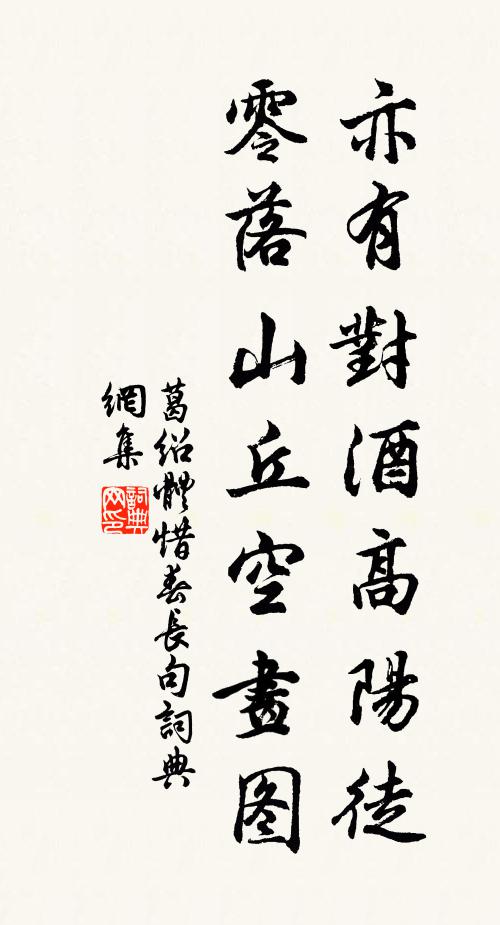 亦有對酒高陽徒
零落山丘空畫图
葛紹體惜春長句詞典
網集
詞典
网印